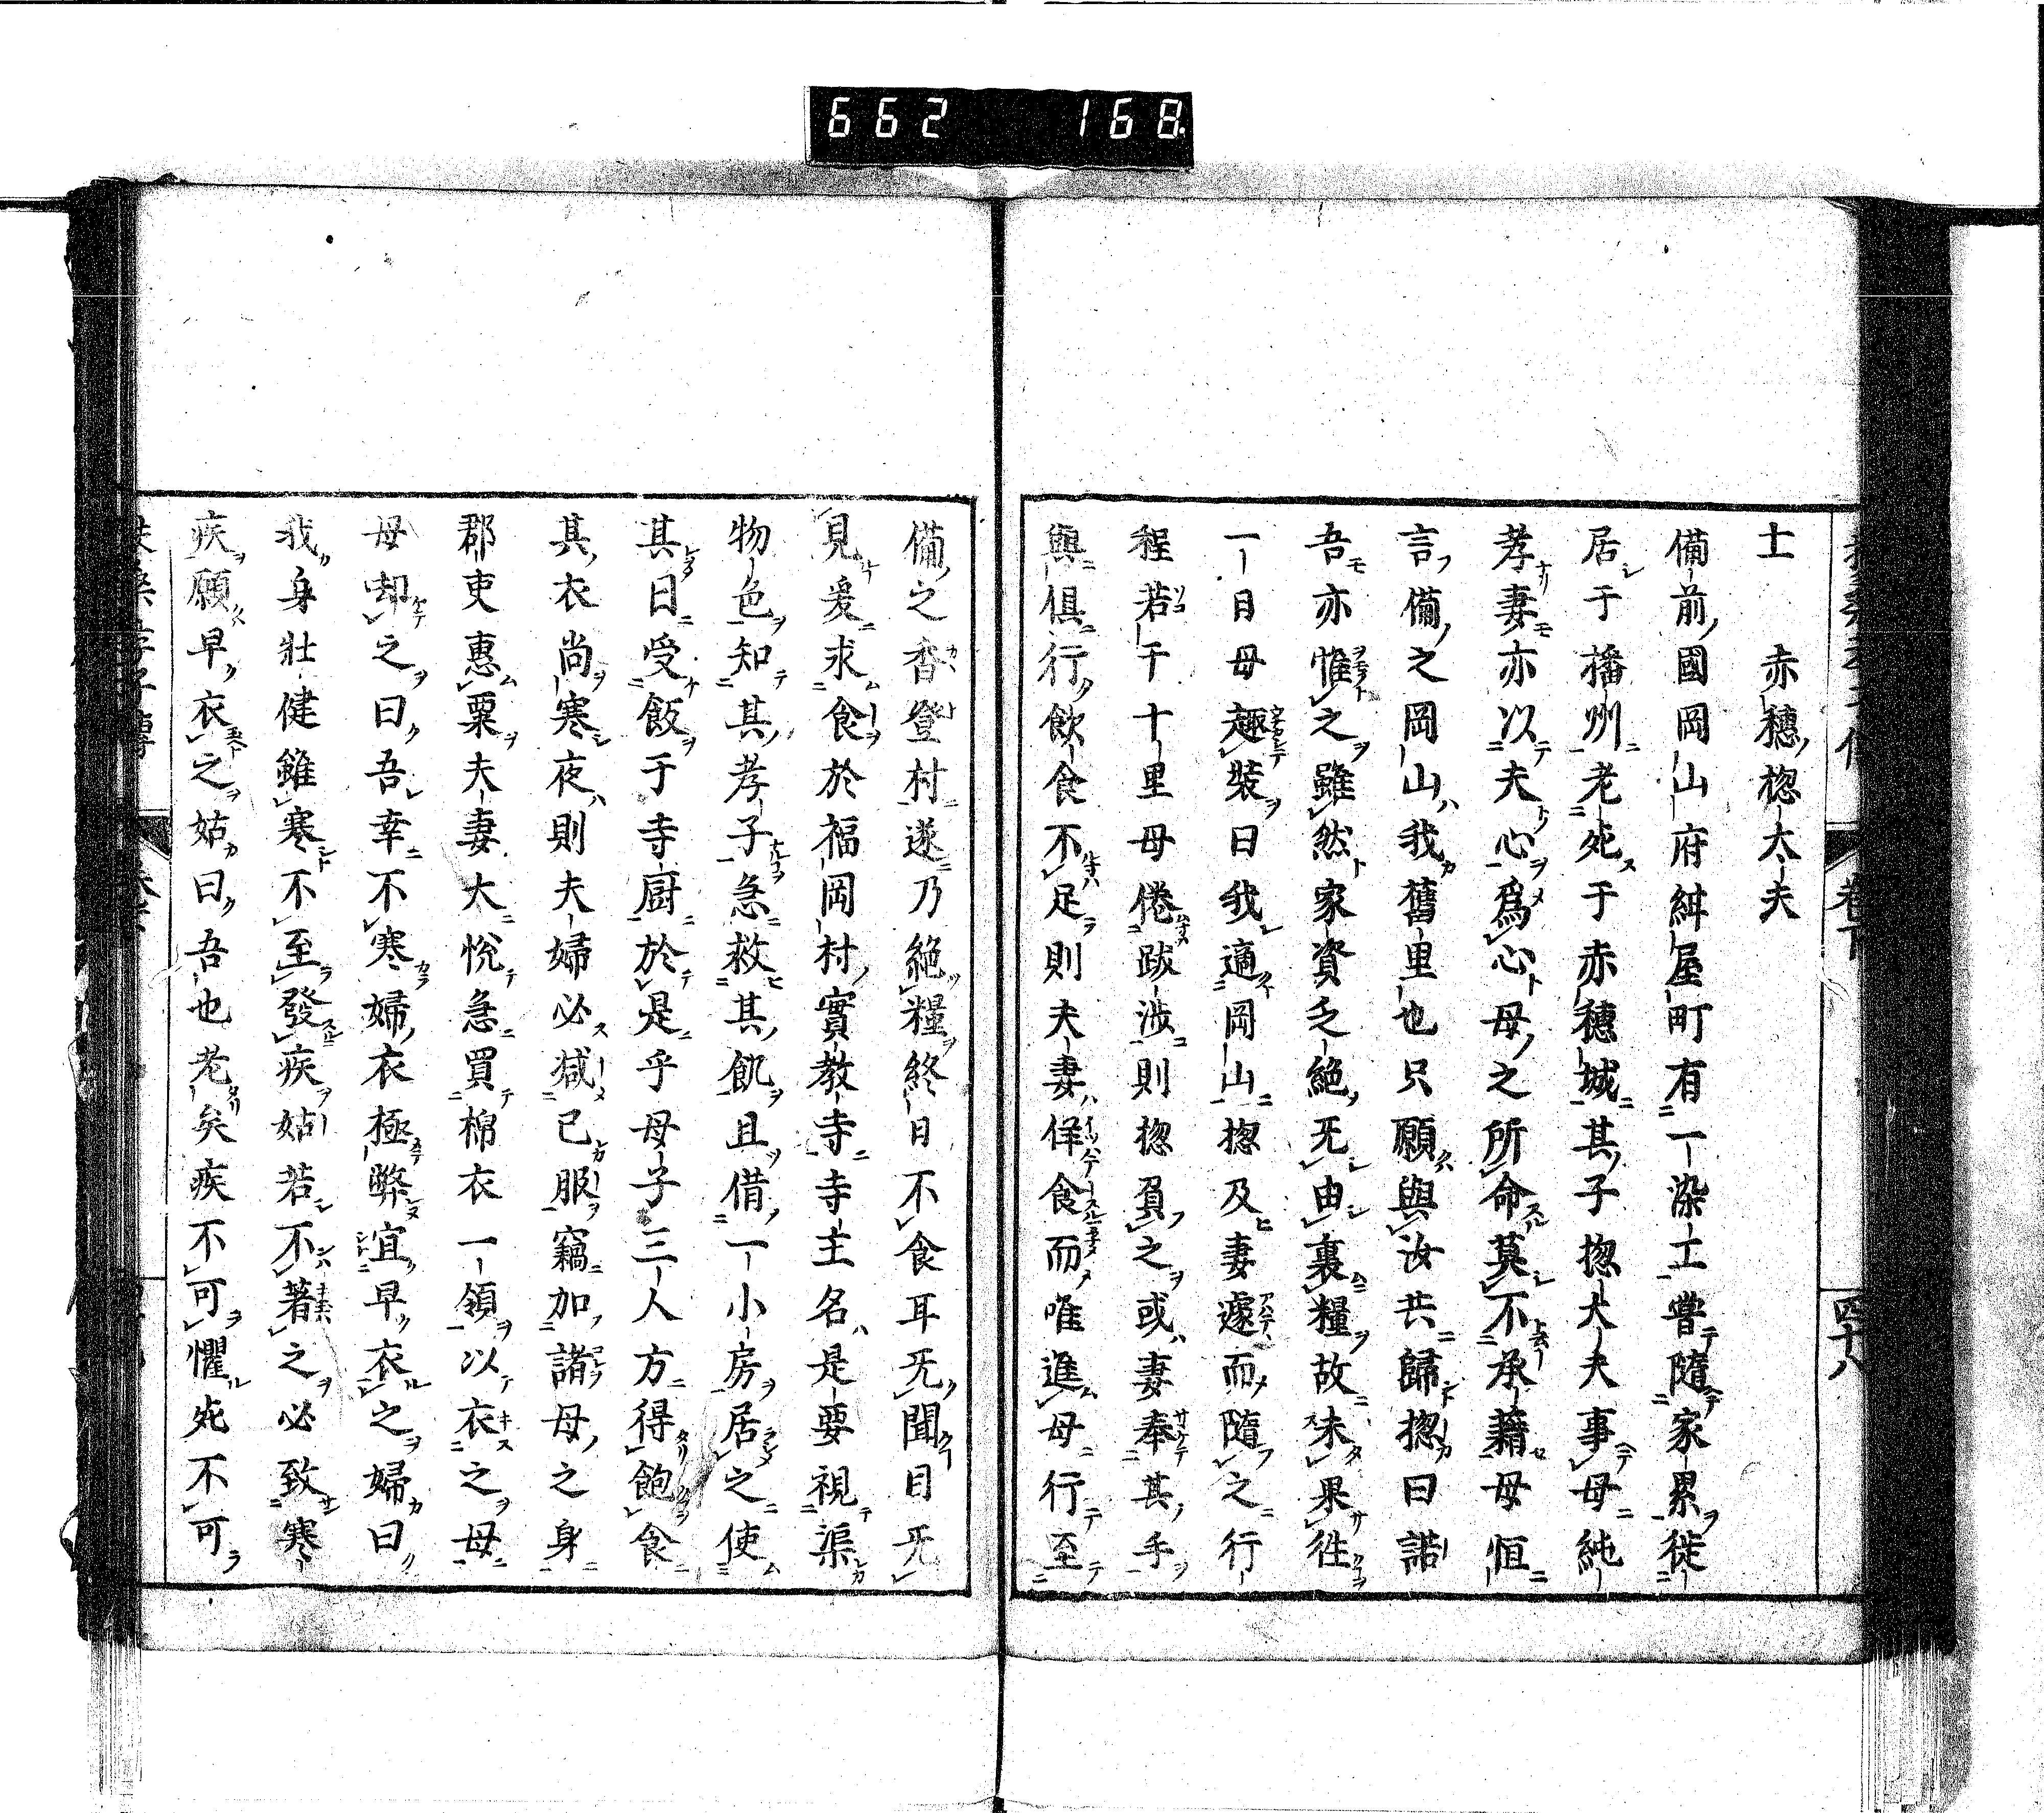 662 168
士　赤穗惣大夫
備前國岡山府紺屋町有一染工嘗隨家累徙
居于播州老死于赤穗城其子惣大夫事母純
孝妻亦以夫心爲心母之所命莫不承藉母恒
言備之岡山我舊里也只願與汝共歸惣曰諾
吾亦惟之雖然家資乏絶无由裹糧故未果徃
一日母趣裝曰我適岡山惣及妻遽而隨之行
程若干十里母倦跋涉則惣負之或妻奉其手
與俱行飲食不足則夫妻佯食而唯進母行至
備之香登村遂乃絶糧終日不食耳无聞目无
見爰求食於福岡村實教寺寺主名是要視渠
物色知其孝子急救其飢且借一小房居之使
其日受飯于寺厨於是乎母子三人方得飽食
其衣尚寒夜則夫婦必減己服竊加諸母之身
郡吏惠粟夫妻大悅急買棉衣一領以衣之母
母却之曰吾幸不寒婦衣極弊宜早衣之婦曰
我身壯健雖寒不至發疾姑若不著之必致寒
疾願早衣之姑曰吾也老矣疾不可懼死不可
卷下
四十八